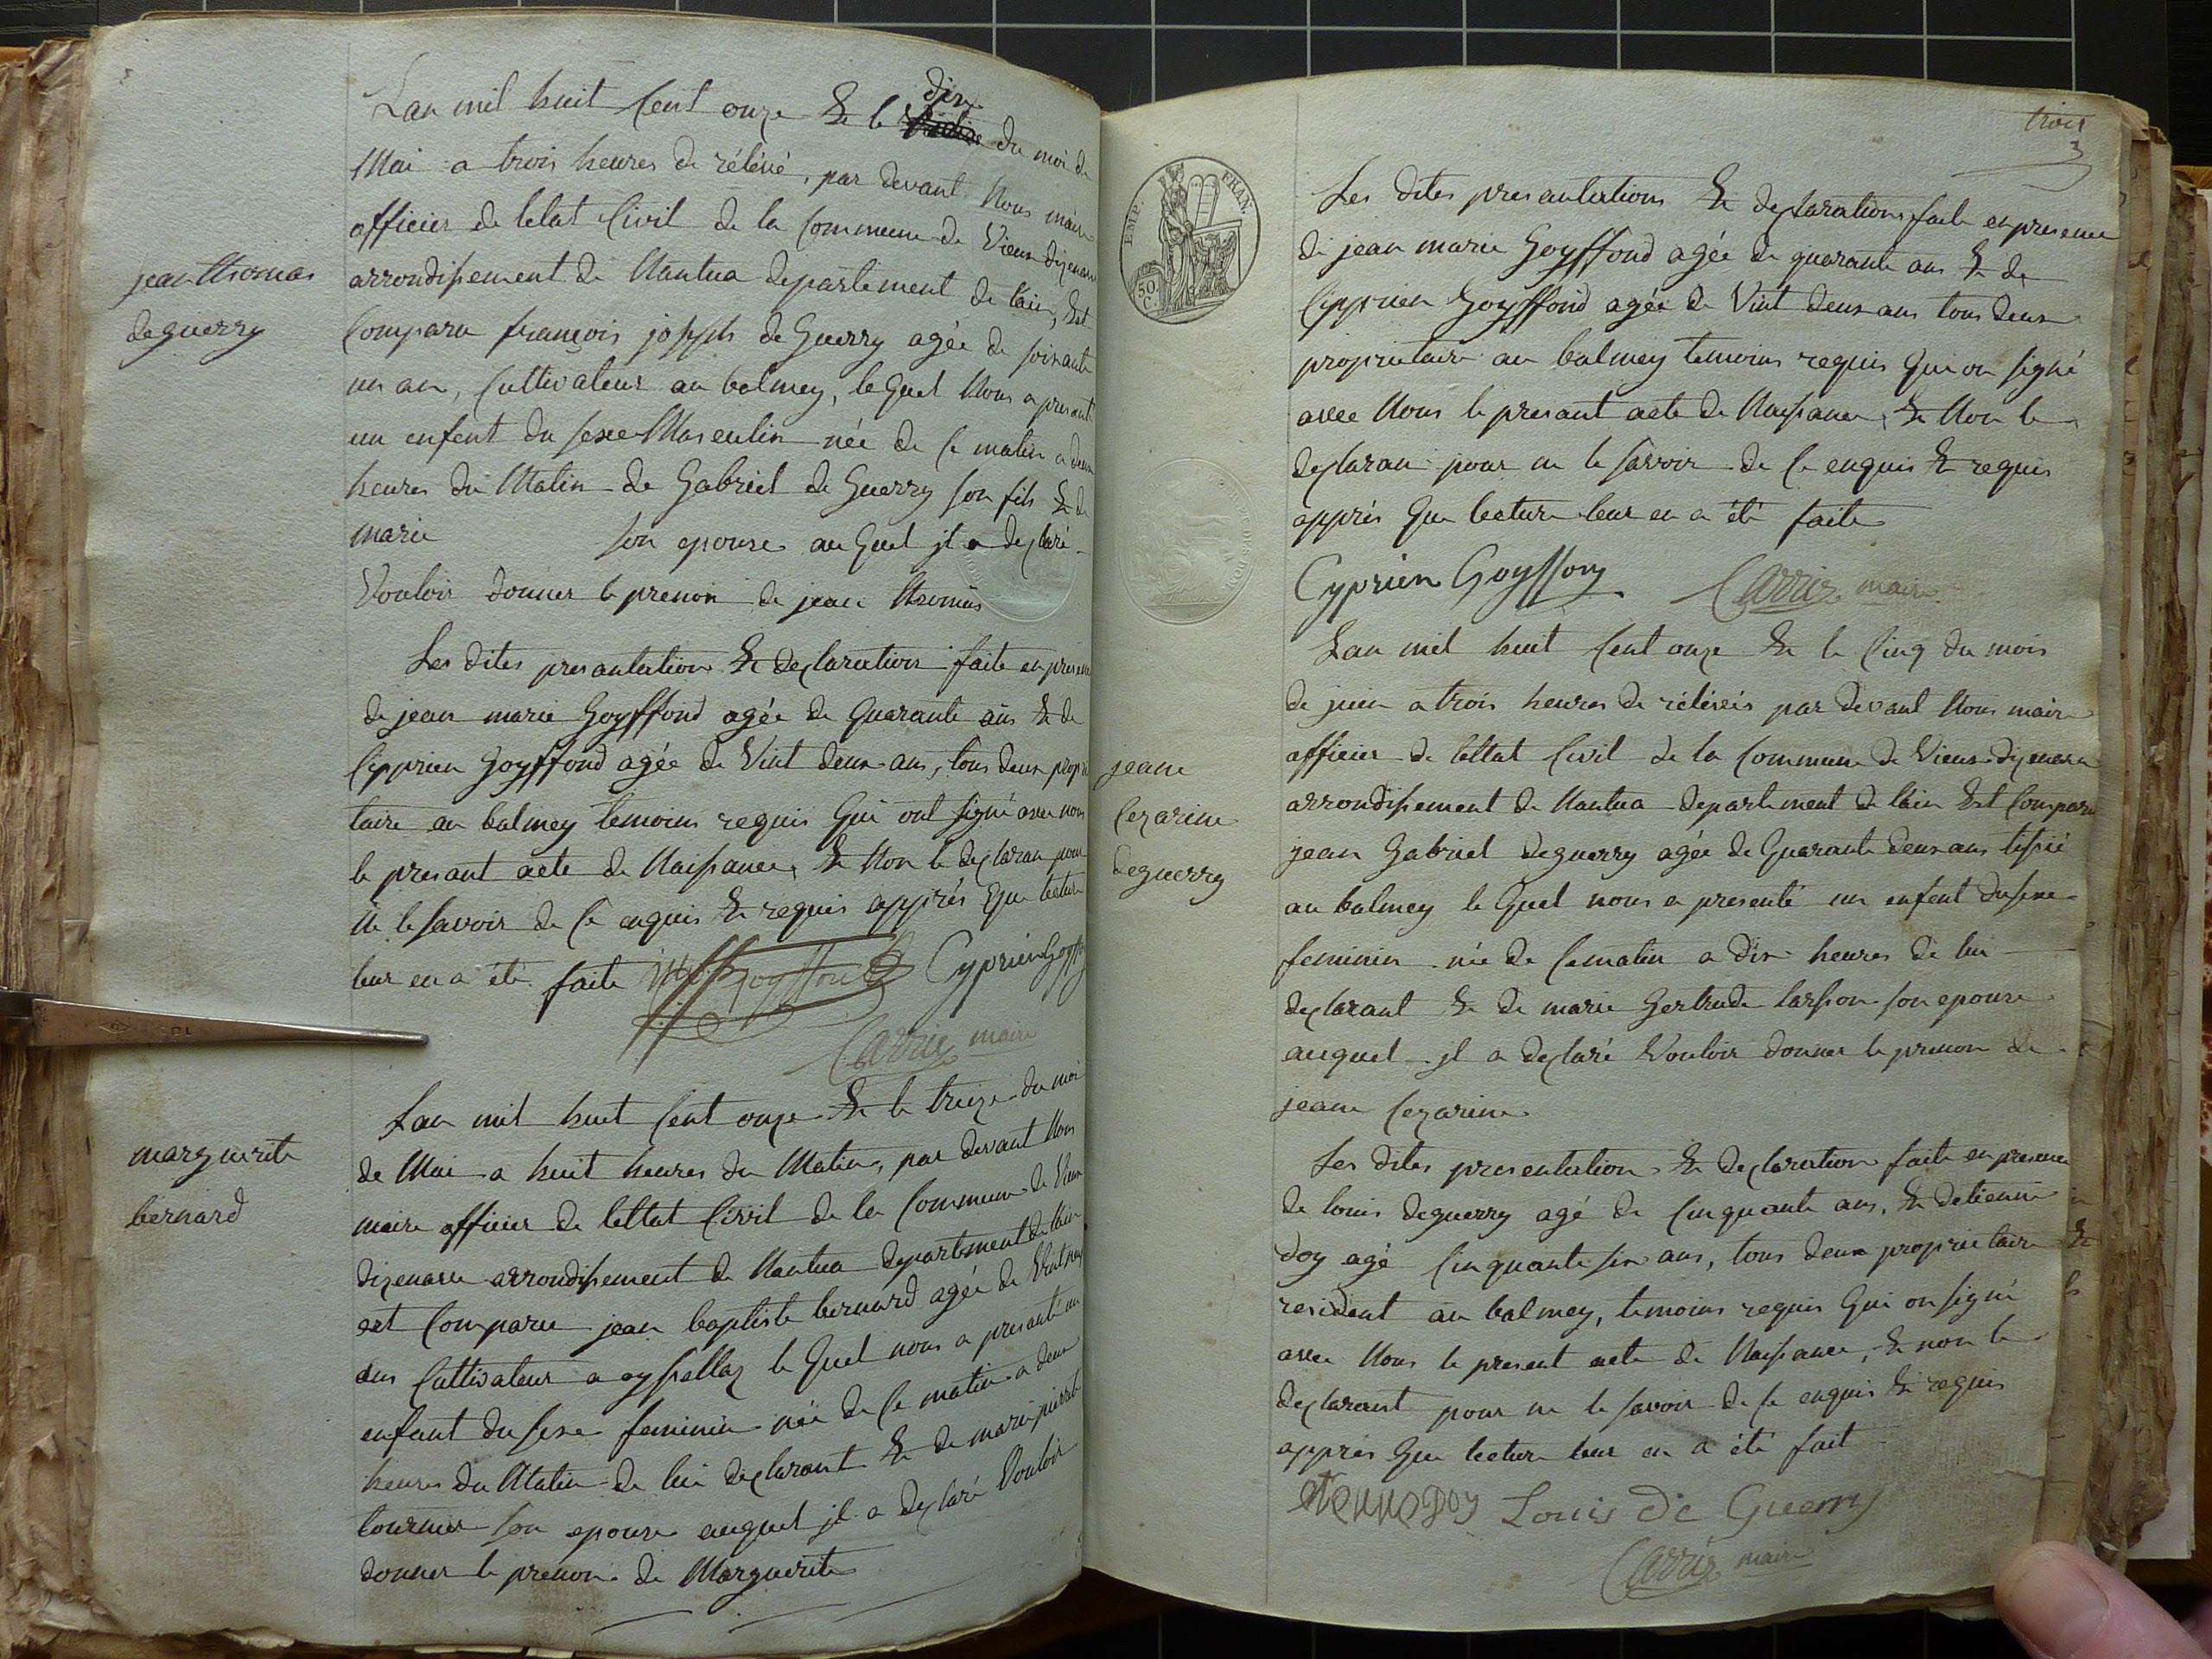 Lan mil huit Cent onze & le dix du moi de
Mai a trois heures de rélévé, par devant Nous maire
officier de letat Civil de la Commune de Vieux dizenave
arrondissement de Nantua departement de lain, Est
Comparu françois joseph de Guerry agée de soixante
un an, Cultivateur au balmey, le Quel Nous a presanté
un enfent du sexe Masculin née de Ce matin a deux
heures du Matin de Gabriel de Guerry son fils & de
marie son epouse au Quel jl a declaré
Vouloir donner le prenon de jean thomas
jean thomas
deguerry
Les dites presantation & declaration faite en presence
de jean marie Goyffond agée de Quarante ans & de
Cipprien Goyffond agée de Vint deux ans, tous deux proprie
taire au balmey temoins requis Qui ont signé avec nous
le presant acte de Naissance, & Non le declaran pour
ne le savoir de Ce enquis & requis apprés Que lecture
leur en a été faite Goyffond Cyprien Goyffon
Carrier maire
Lan mil huit Cent onze & le treize du moi
de Mai a huit heures du Matin, par devant Nous
maire officier de lettat Civil de la Commune de Vieux
dizenave arrondissement de Nantua departement de lain
est Comparu jean baptiste bernard agée de Vint
ans Cultivateur a oyssellaz le Quel nous a presanté un
enfant du sexe feminin née de Ce matin a deux
heures du Matin de lui declarant & de marie pierrette
tournier son epouse auquel jl a declaré Vouloir
donner le prenon de Marguerite
marguerite
bernard
trois
3
EMP. FRAN.
50 C.
Les dites presantations & declarations faite en presence
de jean marie Goyffond agée de quarante ans & de
Cipprien Goyffond agée de Vint deux ans tous deux
proprietaire au balmey temoins requis Qui on signé
avec Nous le presant acte de Naissance, & Non le
declaran pour ne le savoir de Ce enquis & requis
apprés Que lecture leur en a été faite
Cyprien Goyffon Carrier maire
Lan mil huit Cent onze & le Cinq du mois
de juin a trois heures de rélévés par devant Nous maire
officier de lettat Civil de la Commune de Vieux dizenave
arrondissement de Nantua departement de lain Est Comparu
jean Gabriel deguerry agée de Quarante deux ans tissié
au balmey le Quel nous a presenté un enfent du sexe
feminin née de Cematin a dix heures de lui
declarant & de marie Gertrude larsson son epouse
auquel jl a declaré Vouloir donner le prenon de
jeane Cezarine
jeane
Cezarine
deguerry
Les dites presentation & declaration faite en presence
de louis deguerry agé de Cinquante ans, & detienne
doy agé Cinquante six ans, tous deux proprietaire &
resident au balmey, temoins requis Qui on signé
avec Nous le present acte de Naissance, & non le
declarant pour ne le savoir de Ce enquis & requis
apprés Que lecture leur en a été fait
etienne Doy Louis de Guerry
Carrier maire